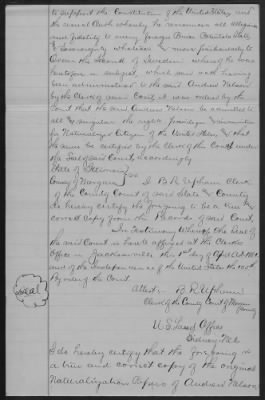 to support the Constitution of the United States and
the usual Oath whereby he renounces all allegiance
and fidelity to every foreign Prince Potentate State
& Sovereignty whatever & more particularly to
Oscar the Second of Sweden whose he was
heretofore a subject, which said oath having
been administered to the said Andrew Nelson
by the Clerk of said Court it was ordered by the
Court that the said Andrew Nelson be admitted to
all & singular the rights privileges & immunities
of a Naturalized Citizen of the United States & that
the same be certified by the Clerk of this Court under
the Seal of said Court accordingly
State of Illinois
County of Morgan } ss
I B. R. Upham Clerk
of the County Court of said State & County
do hereby certify the foregoing to be a true &
correct copy from the Records of said Court,
In Testimony Whereof the Seal of
the said Court is hereto affixed at the Clerks
Office in Jacksonville this 1st day of April A.D. 188
and of the Independence of the United States the 105th
By order of the Court
Seal
Attest: B. R. Upham
Clerk of the County Court of Morgan
County
U.S. Land Office
Sidney Neb
I do hereby certify that the foregoing is
a true and correct copy of the original
Naturalization Papers of Andrew Nelson